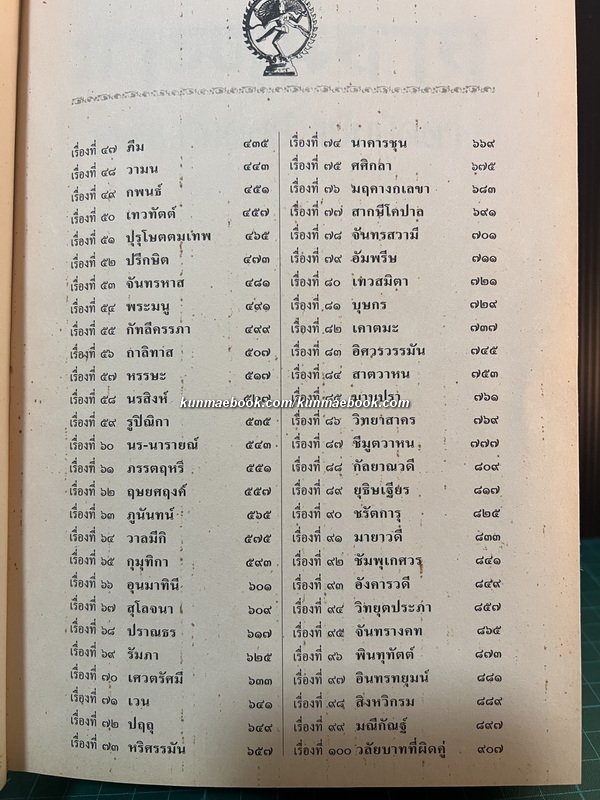 เรื่องที่ ๔๗ ภีม ๔๓๕
เรื่องที่ ๔๘ วามน ๔๔๓
เรื่องที่ ๔๙ กพนธ์ ๔๕๑
เรื่องที่ ๕๐ เทวทัตต์ ๔๕๗
เรื่องที่ ๕๑ ปุรุโษตตมเทพ ๔๖๕
เรื่องที่ ๕๒ ปรีกษิต ๔๗๓
เรื่องที่ ๕๓ จันทรหาส ๔๘๑
เรื่องที่ ๕๔ พระมนู ๔๙๑
เรื่องที่ ๕๕ กัทลีครรภา ๔๙๙
เรื่องที่ ๕๖ กาลิทาส ๕๐๗
เรื่องที่ ๕๗ หรรษะ ๕๑๗
เรื่องที่ ๕๘ นรสิงห์
เรื่องที่ ๕๙ รูปิณิกา ๕๓๕
เรื่องที่ ๖๐ นร-นารายณ์ ๕๔๓
เรื่องที่ ๖๑ ภรรตฤหรี ๕๕๑
เรื่องที่ ๖๒ ฤษยศฤงค์ ๕๕๗
เรื่องที่ ๖๓ ภูนันทน์ ๕๖๕
เรื่องที่ ๖๔ วาลมีกิ ๕๗๕
เรื่องที่ ๖๕ กุมุทิกา ๕๙๓
เรื่องที่ ๖๖ อุนมาทินี ๖๐๑
เรื่องที่ ๖๗ สุโลจนา ๖๐๙
เรื่องที่ ๖๘ ปราณธร ๖๑๗
เรื่องที่ ๖๙ รัมภา ๖๒๕
เรื่องที่ ๗๐ เศวตรัศมี ๖๓๓
เรื่องที่ ๗๑ เวน ๖๔๑
เรื่องที่ ๗๒ ปฤถุ ๖๔๙
เรื่องที่ ๗๓ หริศรรมัน ๖๕๗
เรื่องที่ ๗๔ นาคารชุน ๖๖๙
เรื่องที่ ๗๕ ศศิกลา ๖๗๕
เรื่องที่ ๗๖ มฤคางกเลขา ๖๘๓
เรื่องที่ ๗๗ สากษีโคปาล ๖๙๑
เรื่องที่ ๗๘ จันทรสวามี ๗๐๑
เรื่องที่ ๗๙ อัมพรีษ ๗๑๑
เรื่องที่ ๘๐ เทวสมิตา ๗๒๑
เรื่องที่ ๘๑ บุษกร ๗๒๙
เรื่องที่ ๘๒ เคาตมะ ๗๓๗
เรื่องที่ ๘๓ อิศวรวรรมัน ๗๔๕
เรื่องที่ ๘๔ สาตวาหน ๗๕๓
เรื่องที่ ๘๕ ๗๖๑
เรื่องที่ ๘๖ วิทยาสาคร ๗๖๙
เรื่องที่ ๘๗ ชีมูตวาหน ๗๗๗
เรื่องที่ ๘๘ กัลยาณวดี ๘๐๙
เรื่องที่ ๘๙ ยุธิษเฐียร ๘๑๗
เรื่องที่ ๙๐ ชรัตการุ ๘๒๕
เรื่องที่ ๙๑ มายาวดี ๘๓๓
เรื่องที่ ๙๒ ชัมพุเกศวร ๘๔๑
เรื่องที่ ๙๓ อังคารวดี ๘๔๙
เรื่องที่ ๙๔ วิทยุตประภา ๘๕๗
เรื่องที่ ๙๕ จันทรางคท ๘๖๕
เรื่องที่ ๙๖ พินทุทัตต์ ๘๗๓
เรื่องที่ ๙๗ อินทรทยุมน์ ๘๘๑
เรื่องที่ ๙๘ สิงหวิกรม ๘๘๙
เรื่องที่ ๙๙ มณีกัณฐ์ ๘๙๗
เรื่องที่ ๑๐๐ วลัยบาทที่ผิดคู่ ๙๐๗
kunmaebook.com/kunmaebook.com